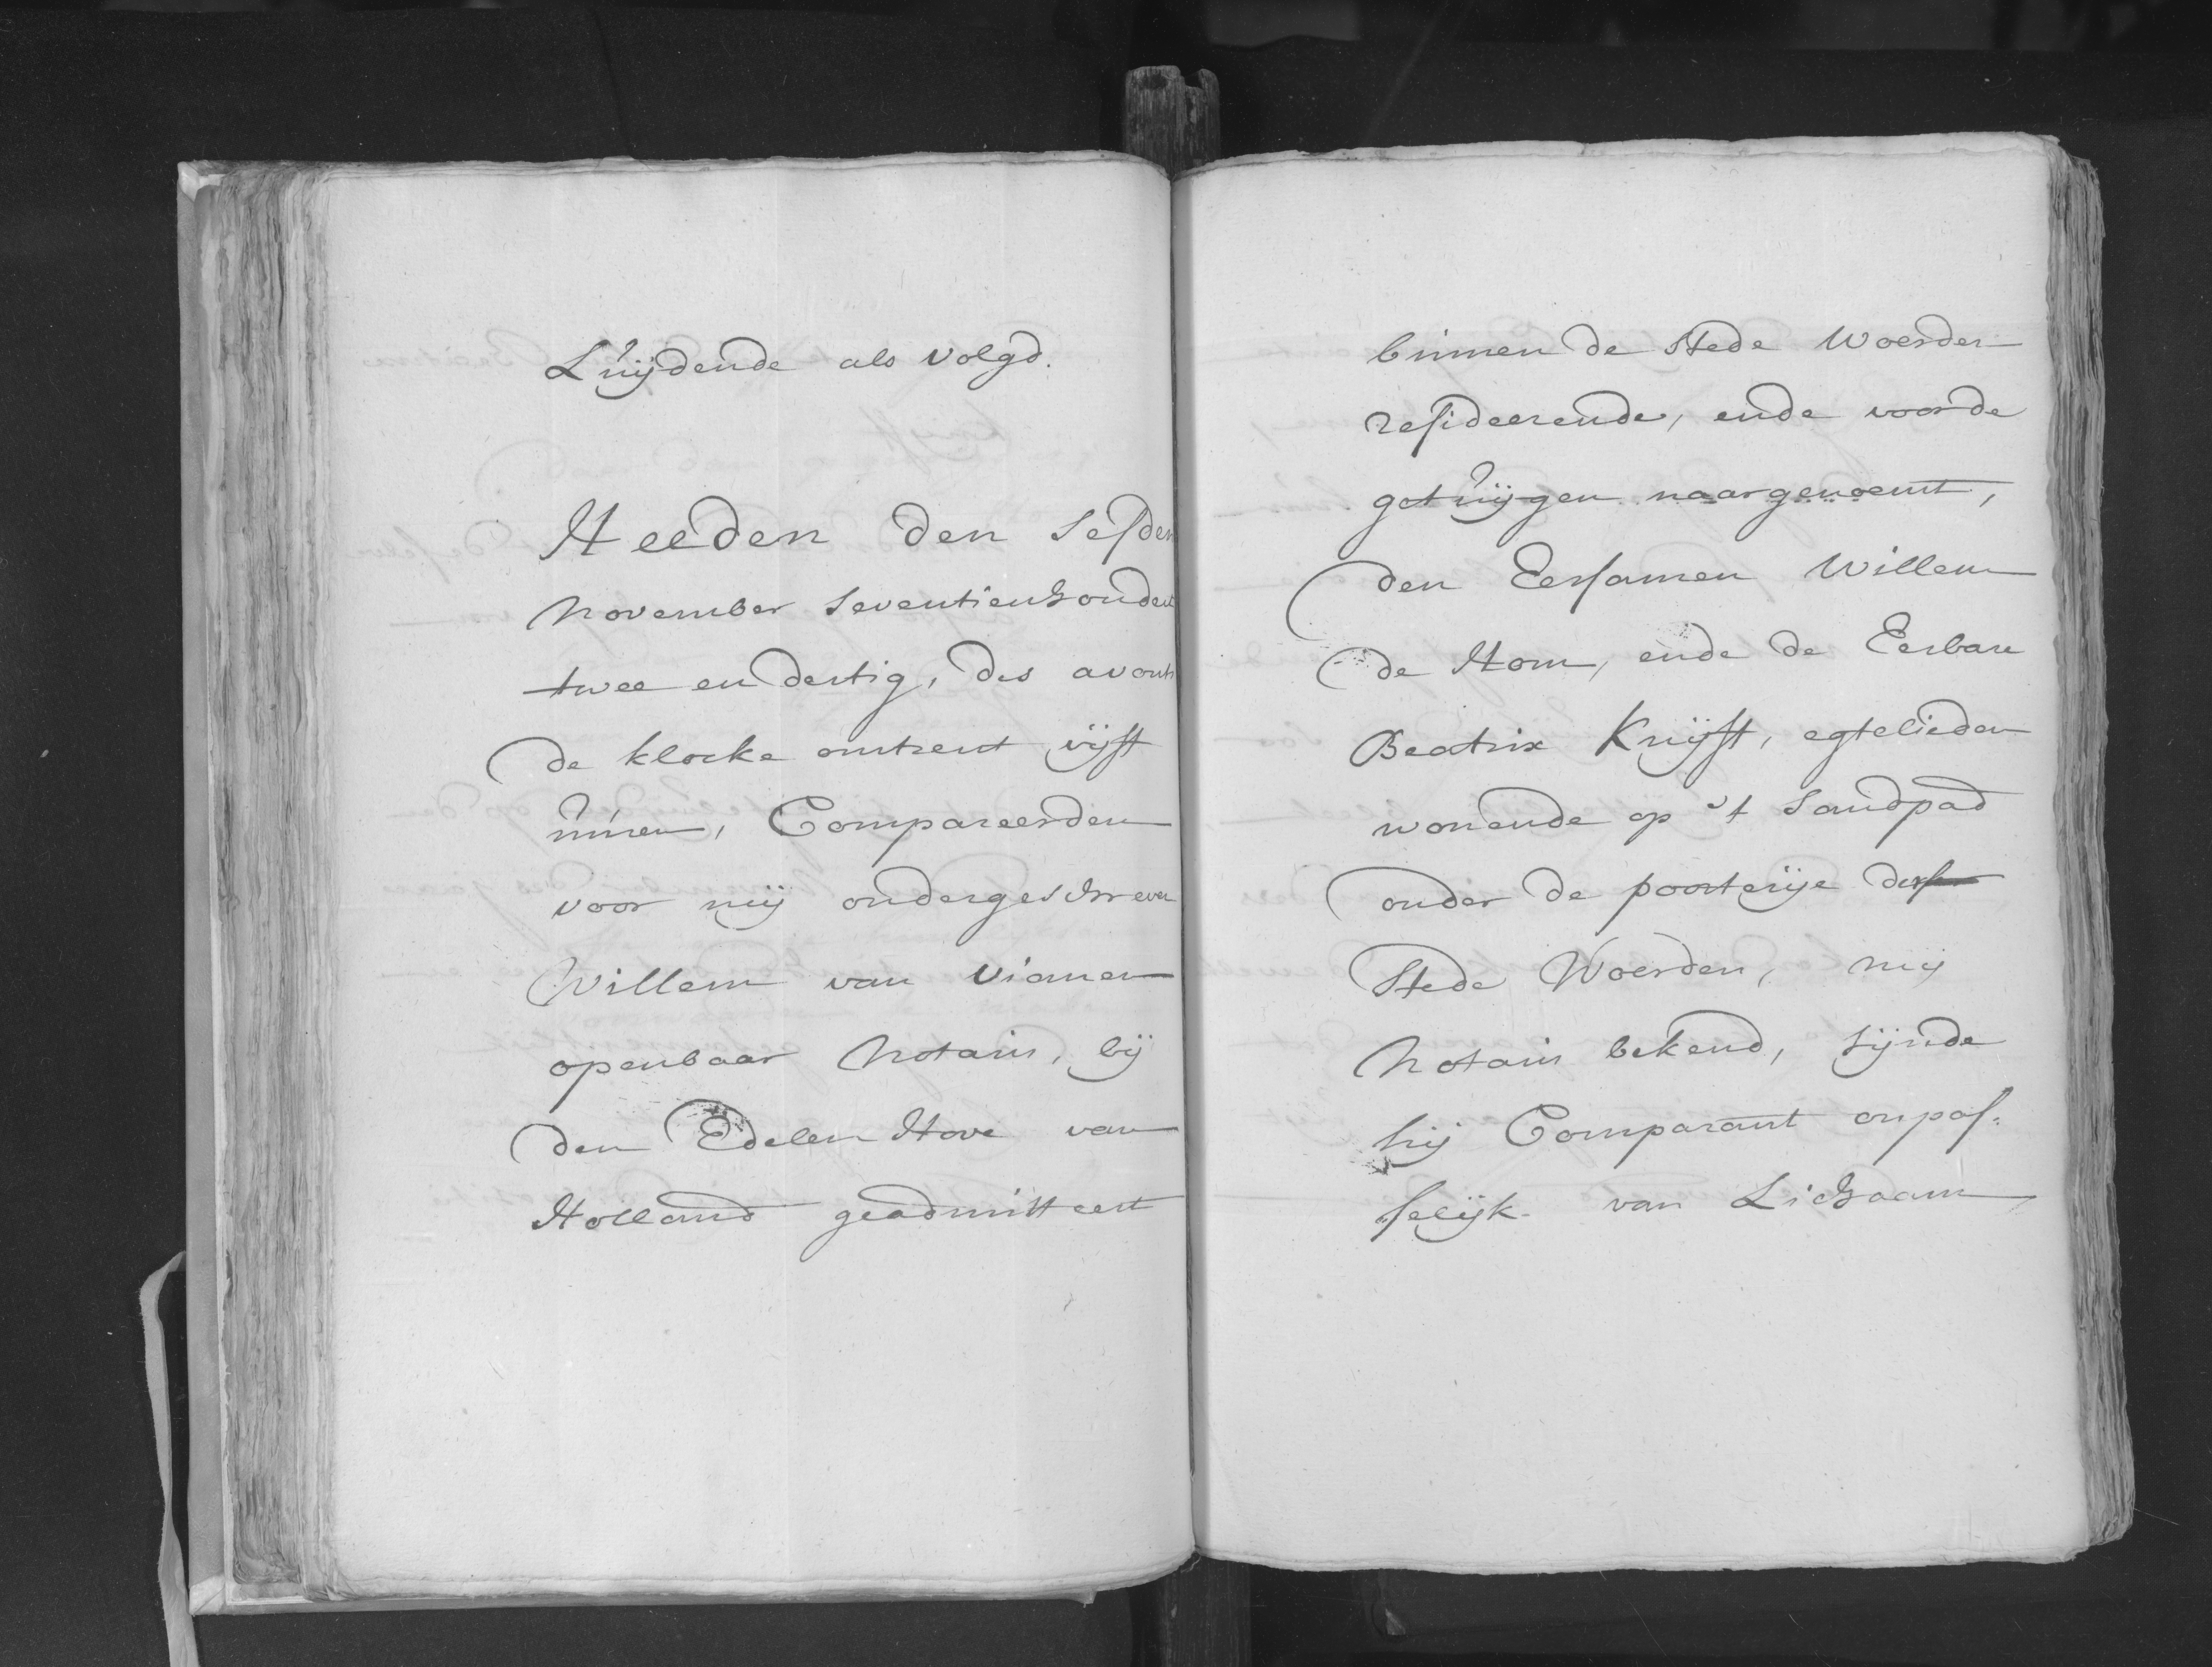 Luijdende als volgd.
Heeden den sesden
November seventienhondert
twee en dertig, des avonts
de klocke omtrent vijff
uuren, Compareerden
voor mij ondergeschreven
Willem van Vianen
openbaar Notaris, bij
den Edelen Hove van
Holland geadmitteert
binnen de stede Woerden
resideerende, ende voor de
getuijgen naargenoemt,
den Eersamen Willem
de Hom, ende de Eerbare
Beatrix Kruijff, egtelieden
wonende op 't Sandpad
onder de poorterije deser
Stede Woerden, mij
Notaris bekend, sijnde
hij Comparant onpas:
selijk van Lichaam